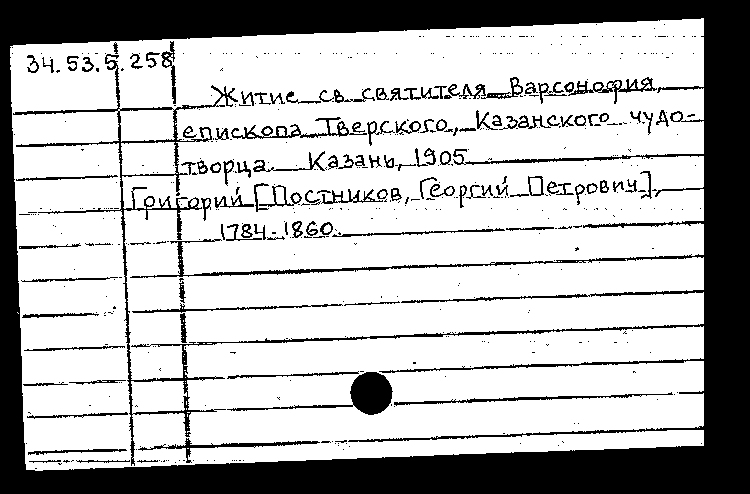 34.53.5.258
Житие св святителя Варсонофия,
епископа Тверского, Казанского чудо-
творца. Казань, 1905
Григорий [Постников, Георгий Петрович],
1784-1860.